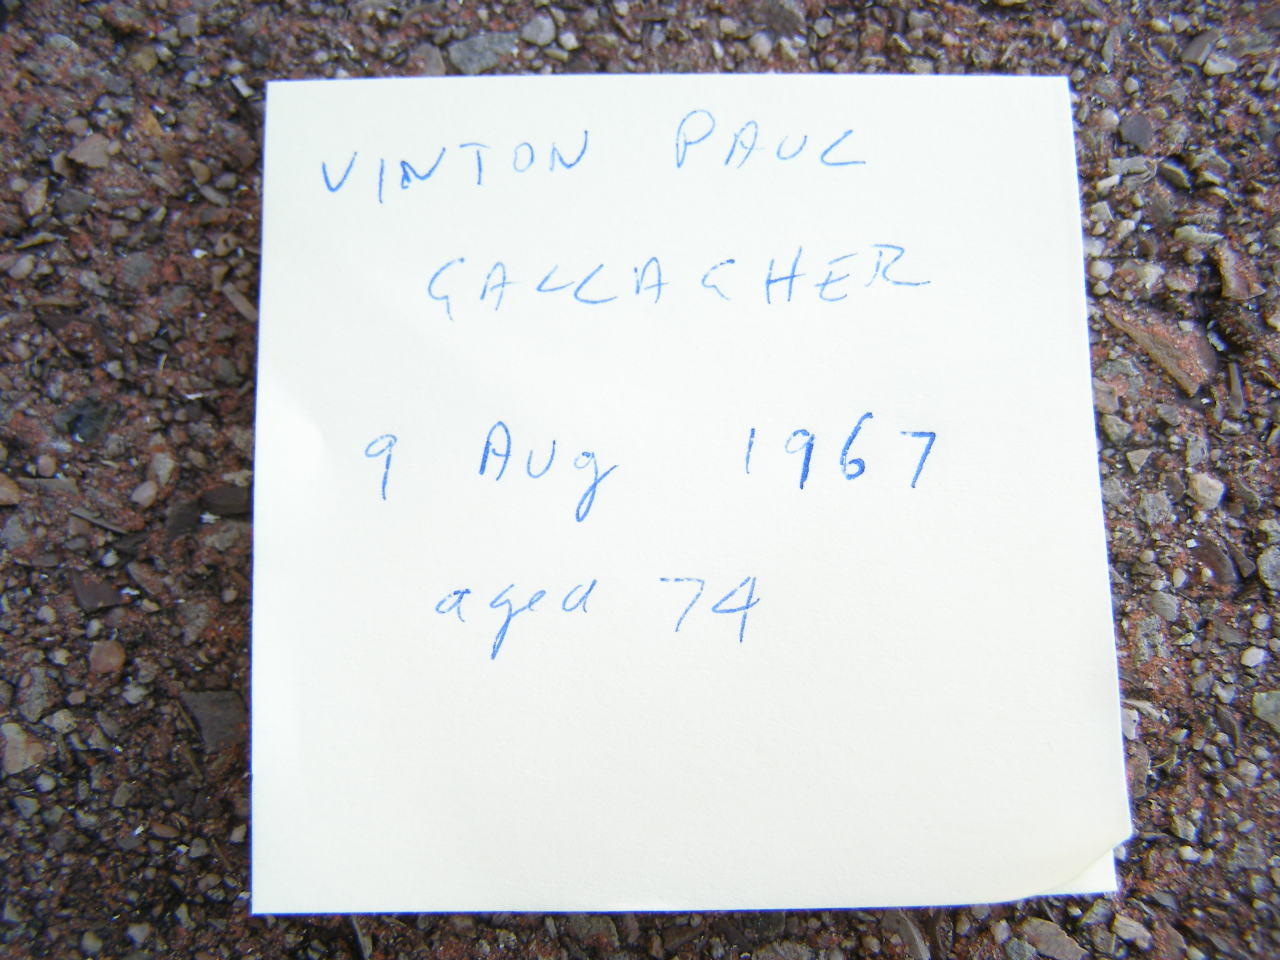 VINTON PAUL
GALLAGHER
9 Aug 1967
aged 74